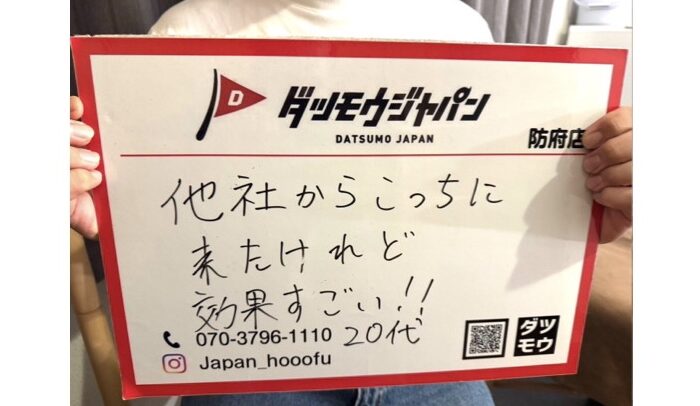 D ダツモウジャパン
DATSUMO JAPAN
防府店
他社からこっちに
来たけれど
効果すごい!!
20代
070-3796-1110
Japan_hooofu
ダツ
モウ